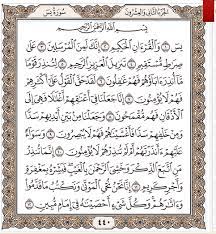 الجزء الثاني والعشرون سورة يس
بِسْمِ ٱللَّهِ ٱلرَّحْمَٰنِ ٱلرَّحِيمِ
يسٓ ۝١ وَٱلْقُرْءَانِ ٱلْحَكِيمِ ۝٢ إِنَّكَ لَمِنَ ٱلْمُرْسَلِينَ ۝٣ عَلَىٰ
صِرَٰطٍ مُّسْتَقِيمٍ ۝٤ تَنزِيلَ ٱلْعَزِيزِ ٱلرَّحِيمِ ۝٥ لِتُنذِرَ قَوْمًا
مَّآ أُنذِرَ ءَابَآؤُهُمْ فَهُمْ غَٰفِلُونَ ۝٦ لَقَدْ حَقَّ ٱلْقَوْلُ عَلَىٰٓ أَكْثَرِهِمْ
فَهُمْ لَا يُؤْمِنُونَ ۝٧ إِنَّا جَعَلْنَا فِىٓ أَعْنَٰقِهِمْ أَغْلَٰلًا فَهِىَ إِلَى
ٱلْأَذْقَانِ فَهُم مُّقْمَحُونَ ۝٨ وَجَعَلْنَا مِنۢ بَيْنِ أَيْدِيهِمْ سَدًّا
وَمِنْ خَلْفِهِمْ سَدًّا فَأَغْشَيْنَٰهُمْ فَهُمْ لَا يُبْصِرُونَ ۝٩ وَسَوَآءٌ
عَلَيْهِمْ ءَأَنذَرْتَهُمْ أَمْ لَمْ تُنذِرْهُمْ لَا يُؤْمِنُونَ ۝١٠ إِنَّمَا تُنذِرُ
مَنِ ٱتَّبَعَ ٱلذِّكْرَ وَخَشِىَ ٱلرَّحْمَٰنَ بِٱلْغَيْبِ فَبَشِّرْهُ بِمَغْفِرَةٍ
وَأَجْرٍ كَرِيمٍ ۝١١ إِنَّا نَحْنُ نُحْىِ ٱلْمَوْتَىٰ وَنَكْتُبُ مَا قَدَّمُوا۟
وَءَاثَٰرَهُمْ وَكُلَّ شَىْءٍ أَحْصَيْنَٰهُ فِىٓ إِمَامٍ مُّبِينٍ ۝١٢
٤٤٠